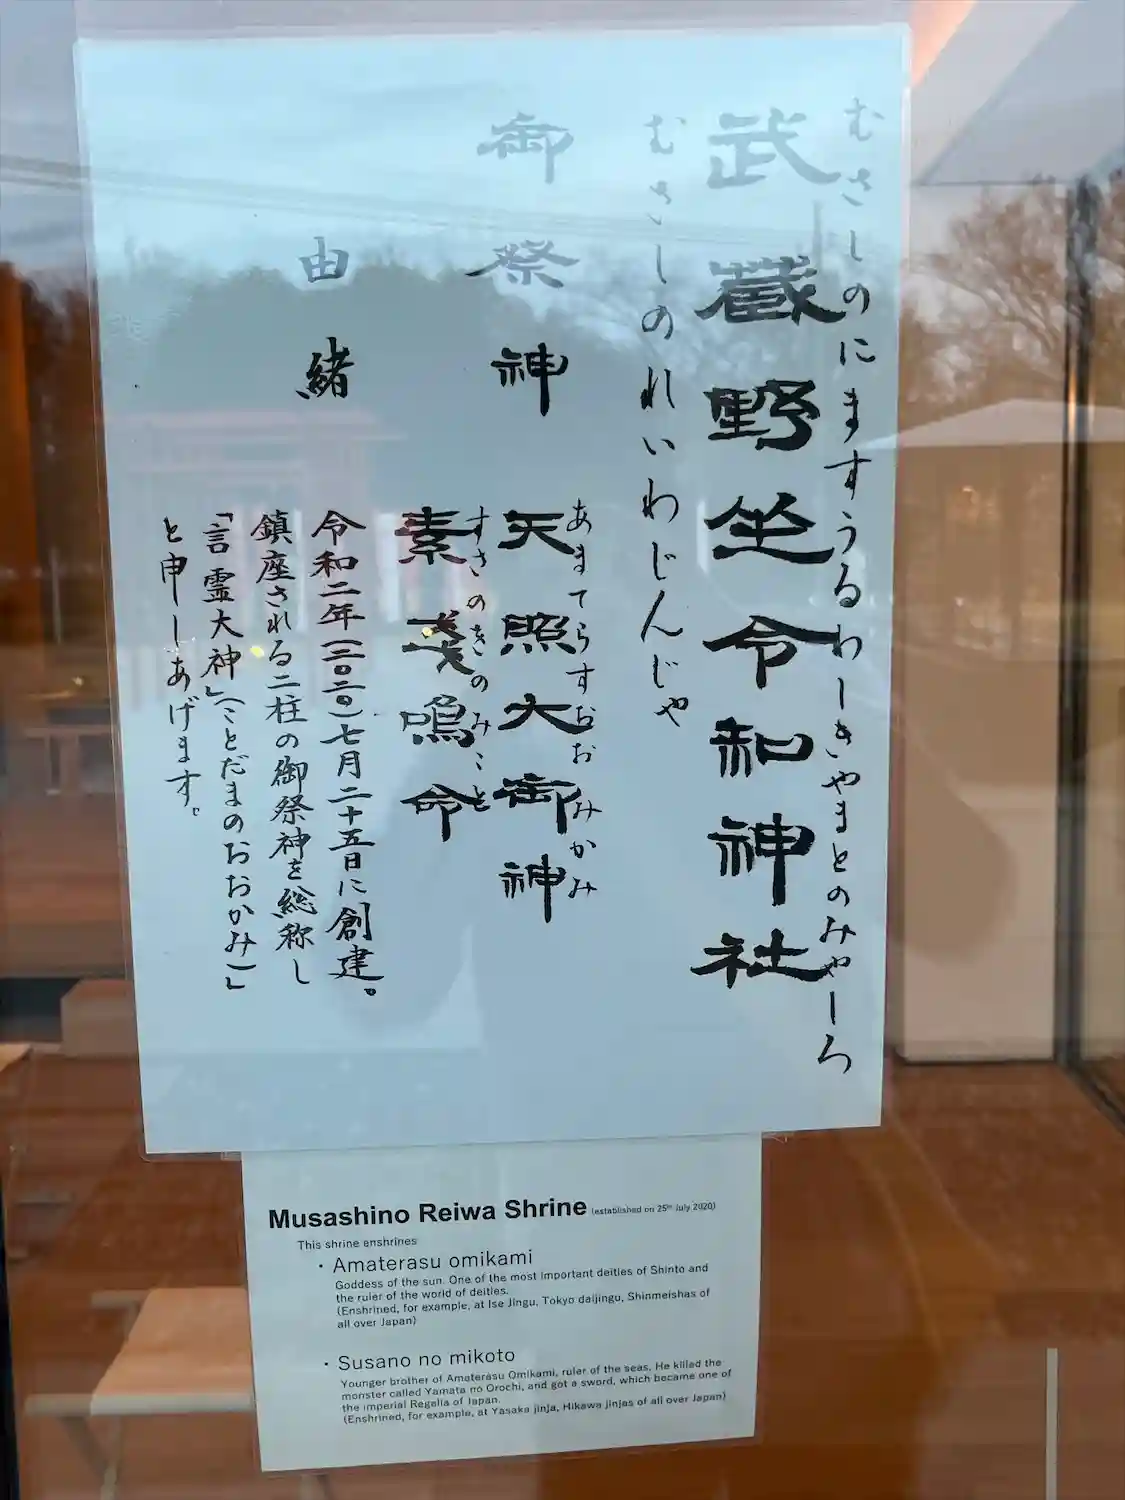 むさしのにますうるわしきやまとのみやしろ
武蔵野坐令和神社
むさしのれいわじんじゃ
御祭神
あまてらすおおみかみ
天照大御神
すさのをのみこと
素戔嗚命
由緒
令和二年(二〇二〇)七月二十五日に創建。
鎮座される二柱の御祭神を総称し
「言霊大神」(ことだまのおおかみ)」
と申しあげます。
Musashino Reiwa Shrine (established on 25th July 2020)
This shrine enshrines
・Amaterasu omikami
Goddess of the sun. One of the most important deities of Shinto and
the ruler of the world of deities.
(Enshrined, for example, at Ise Jingu, Tokyo daijingu, Shinmeishas of
all over Japan)
・Susano no mikoto
Younger brother of Amaterasu Omikami, ruler of the seas. He killed the
monster called Yamata no Orochi, and got a sword, which became one of
the Imperial Regalia of Japan.
(Enshrined, for example, at Yasaka jinja, Hikawa jinjas of all over Japan)